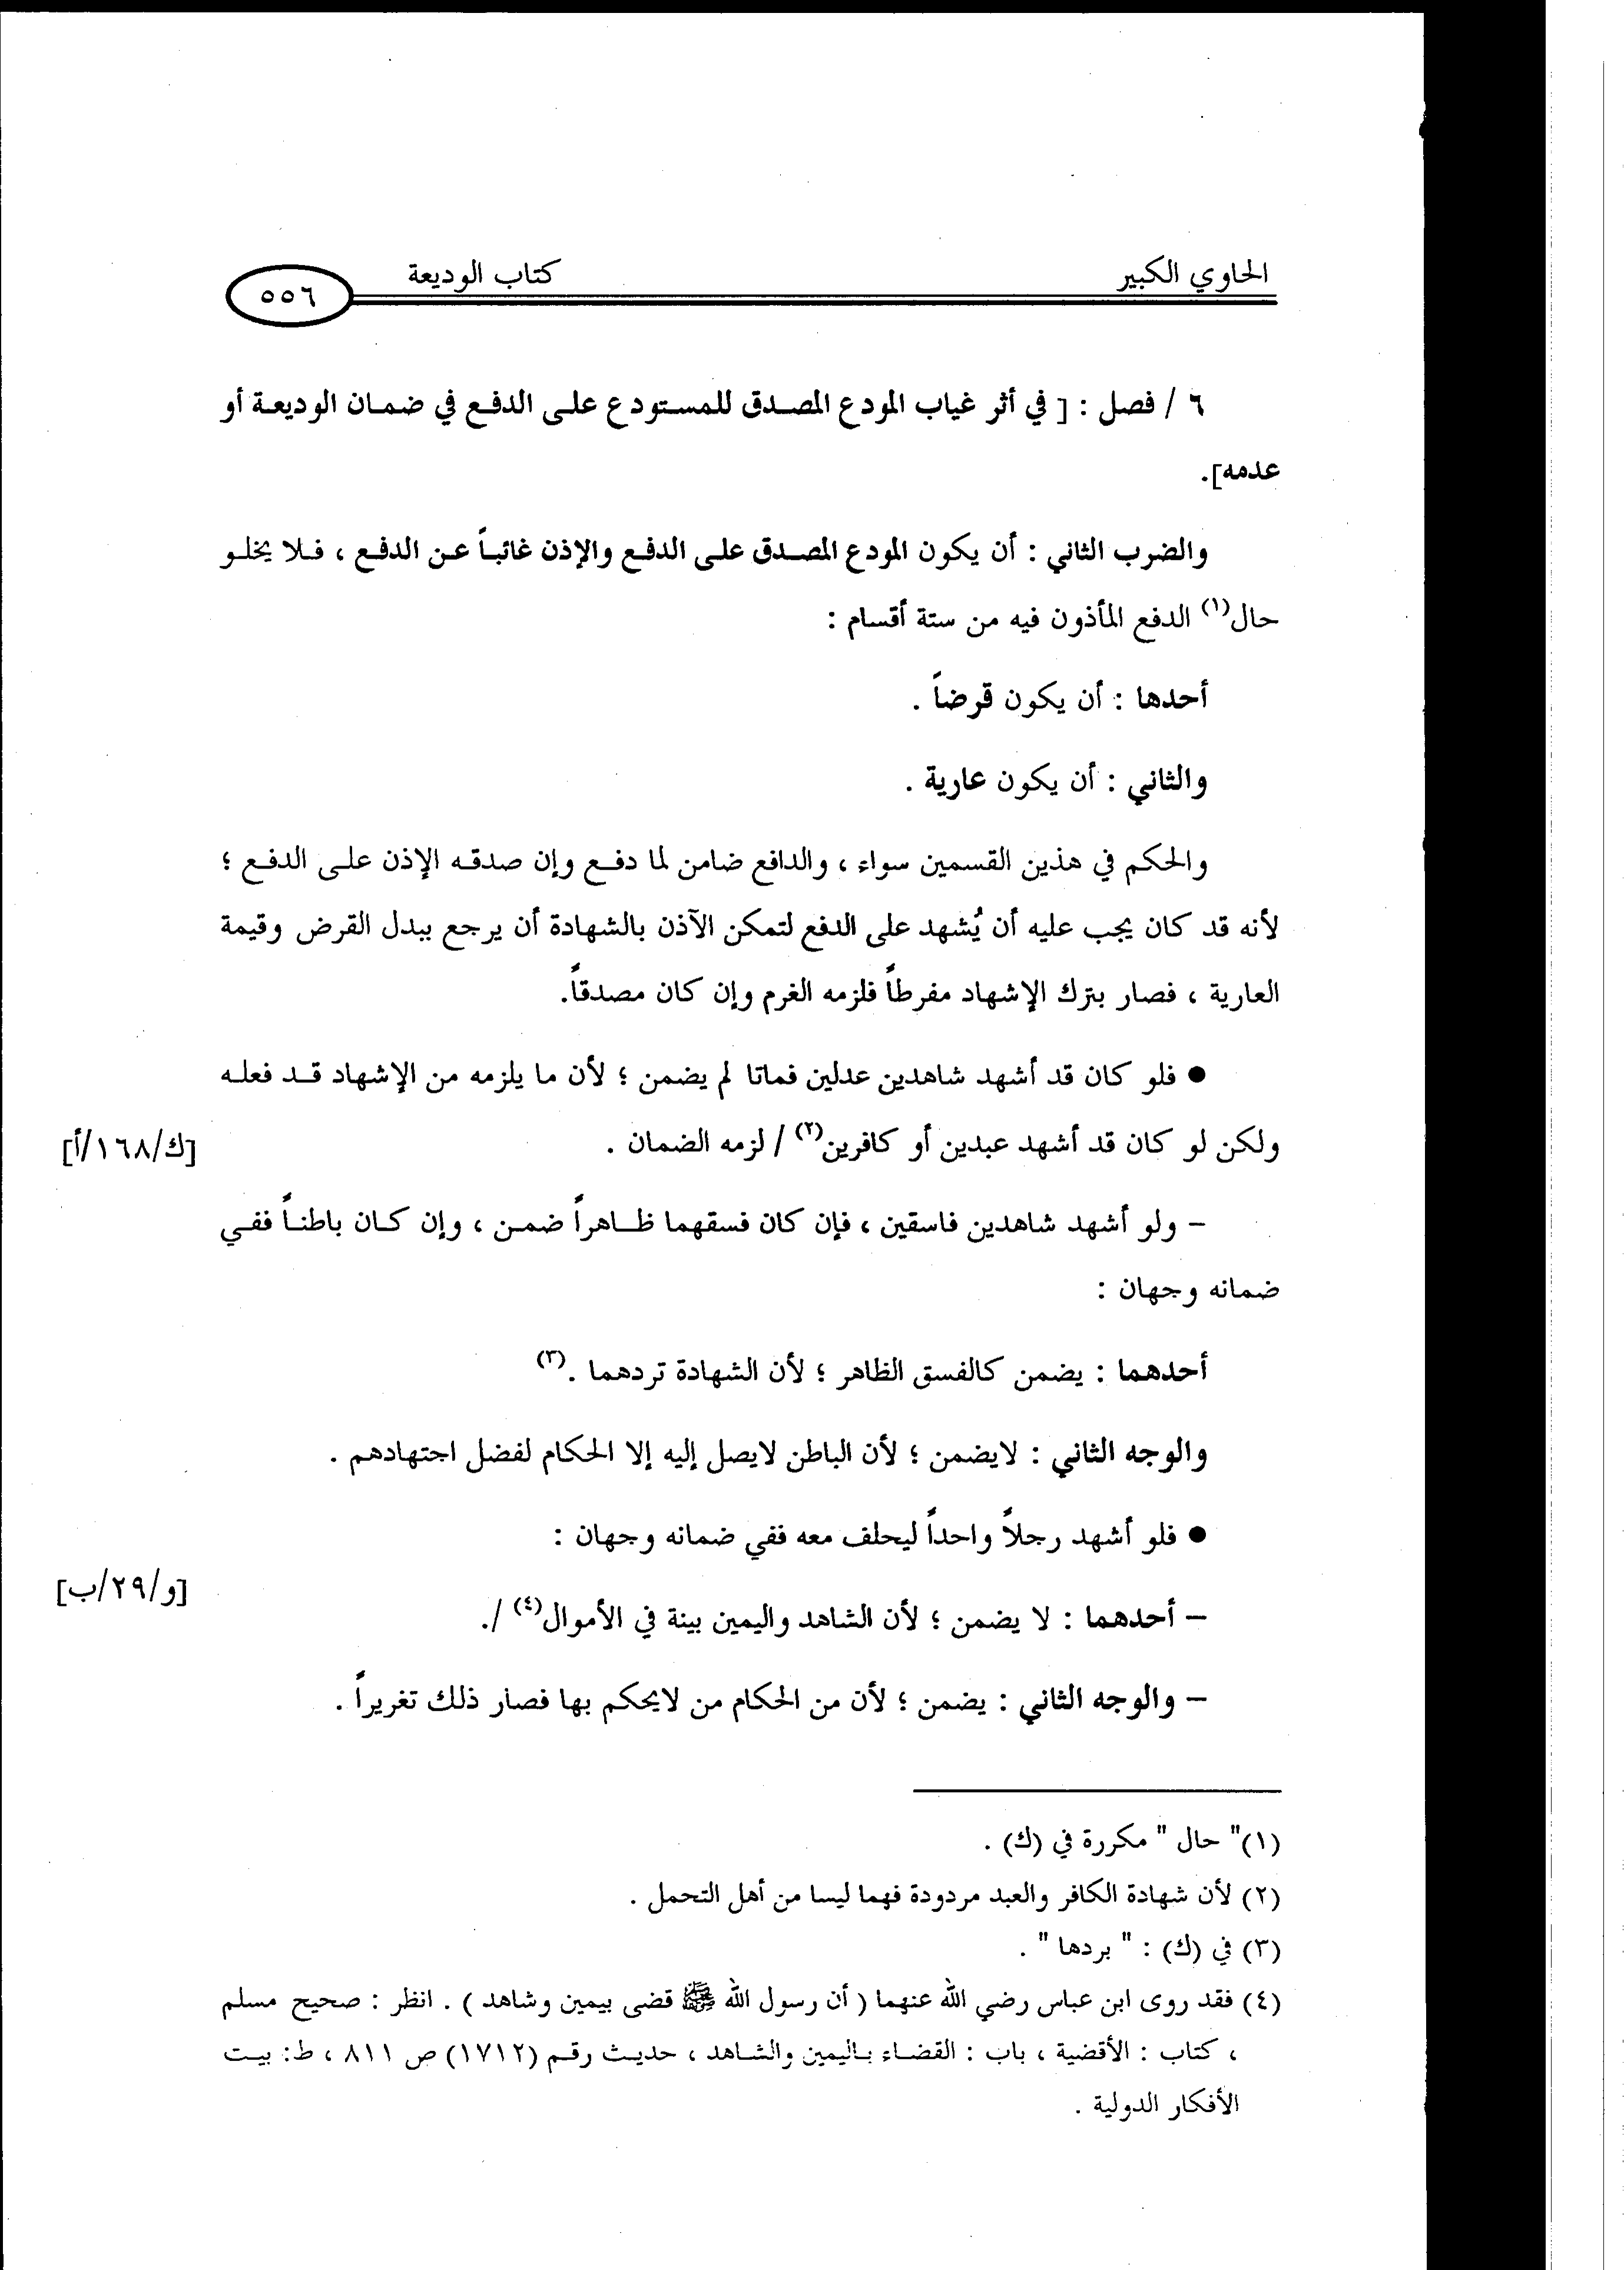 الحاوي الكبير
كتاب الوديعة
٥٥٦
٦ / فصل : [ في أثر غياب المودع المصدق للمستودع على الدفع في ضمان الوديعة أو
عدمه].
والضرب الثاني : أن يكون المودع المصدق على الدفع والإذن غائباً عن الدفع ، فلا يخلو
حال(١) الدفع المأذون فيه من ستة أقسام :
أحدها : أن يكون قرضاً .
والثاني : أن يكون عارية .
والحكم في هذين القسمين سواء ، والدافع ضامن لما دفع وإن صدقه الإذن على الدفع ؛
لأنه قد كان يجب عليه أن يُشهد على الدفع لتمكن الآذن بالشهادة أن يرجع ببدل القرض وقيمة
العارية ، فصار بترك الإشهاد مفرطاً فلزمه الغرم وإن كان مصدقاً.
● فلو كان قد أشهد شاهدين عدلين فماتا لم يضمن ؛ لأن ما يلزمه من الإشهاد قد فعله
ولكن لو كان قد أشهد عبدين أو كافرين(٢) / لزمه الضمان .
[ك/١٦٨/أ]
– ولو أشهد شاهدين فاسقين ، فإن كان فسقهما ظاهراً ضمن ، وإن كان باطناً ففي
ضمانه وجهان :
أحدهما : يضمن كالفسق الظاهر ؛ لأن الشهادة تردهما .(٣)
والوجه الثاني : لايضمن ؛ لأن الباطن لايصل إليه إلا الحكام لفضل اجتهادهم .
● فلو أشهد رجلاً واحداً ليحلف معه ففي ضمانه وجهان :
– أحدهما : لا يضمن ؛ لأن الشاهد واليمين بينة في الأموال(٤) /.
[و/٢٩/ب]
– والوجه الثاني : يضمن ؛ لأن من الحكام من لايحكم بها فصار ذلك تغريراً .
(١)" حال " مكررة في (ك) .
(٢) لأن شهادة الكافر والعبد مردودة فهما ليسا من أهل التحمل .
(٣) في (ك) : " بردها " .
(٤) فقد روى ابن عباس رضي الله عنهما ( أن رسول الله ﷺ قضى بيمين وشاهد ) . انظر : صحيح مسلم
، كتاب : الأقضية ، باب : القضاء باليمين والشاهد ، حديث رقم (١٧١٢) ص ٨١١ ، ط: بيت
الأفكار الدولية .